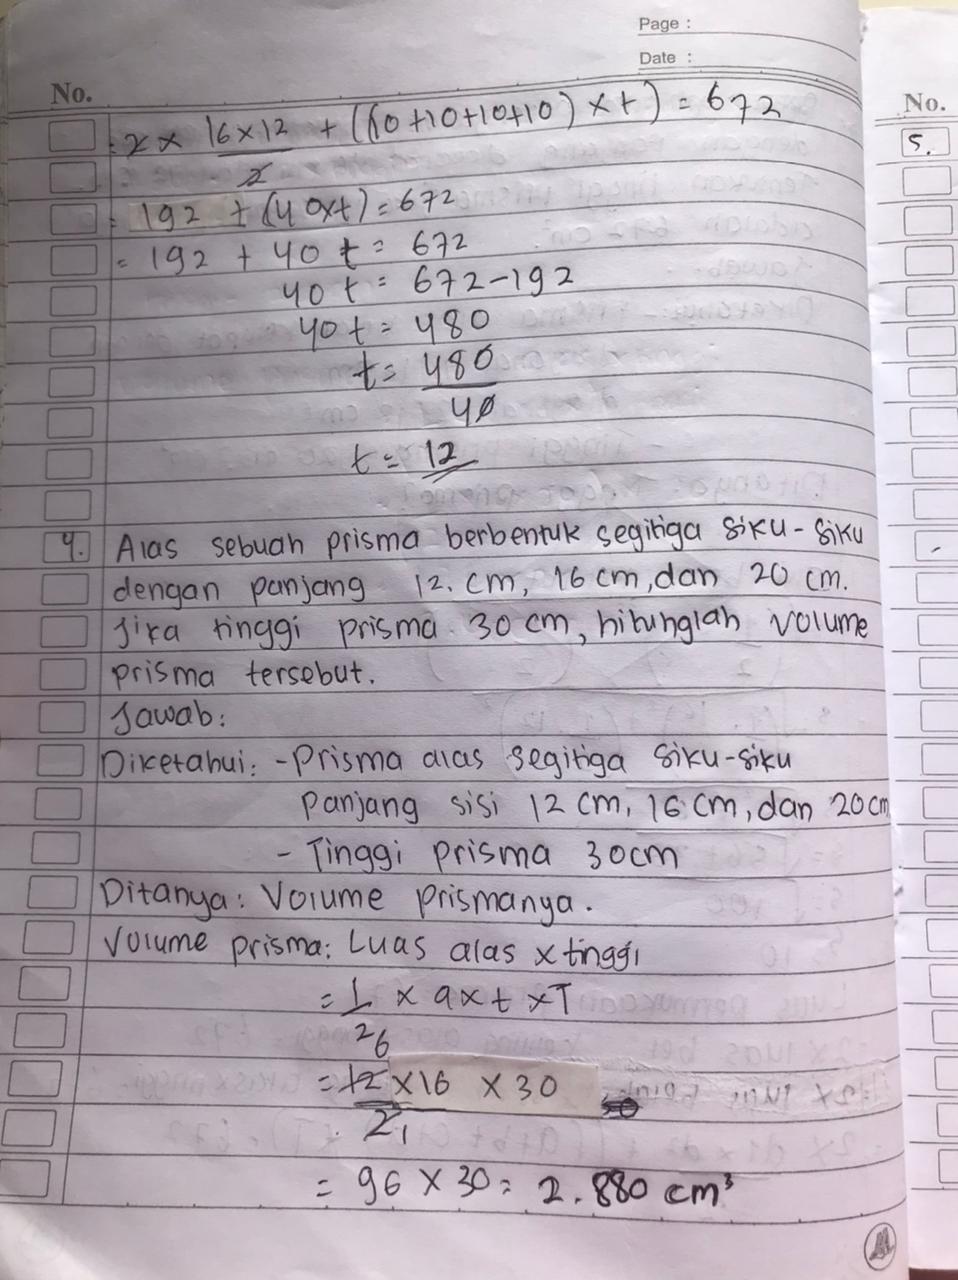 Page :
Date :
No.
= 2 x 16 x 12 / 2 + ((10+10+10+10) x t) = 672
= 192 + (40xt) = 672
= 192 + 40 t = 672
40 t = 672-192
40 t = 480
t = 480 / 40
t = 12
4. Alas sebuah prisma berbentuk segitiga siku-siku
dengan panjang 12. cm, 16 cm, dan 20 cm.
Jika tinggi prisma 30 cm, hitunglah volume
prisma tersebut.
Jawab:
Diketahui: -Prisma alas segitiga siku-siku
Panjang sisi 12 cm, 16 cm, dan 20 cm
- Tinggi prisma 30cm
Ditanya: Volume prismanya.
Volume prisma: Luas alas x tinggi
= 1/2 x a x t x T
6
= 12 x 16 / 2 x 30
1
= 96 x 30 = 2.880 cm³
No.
5.